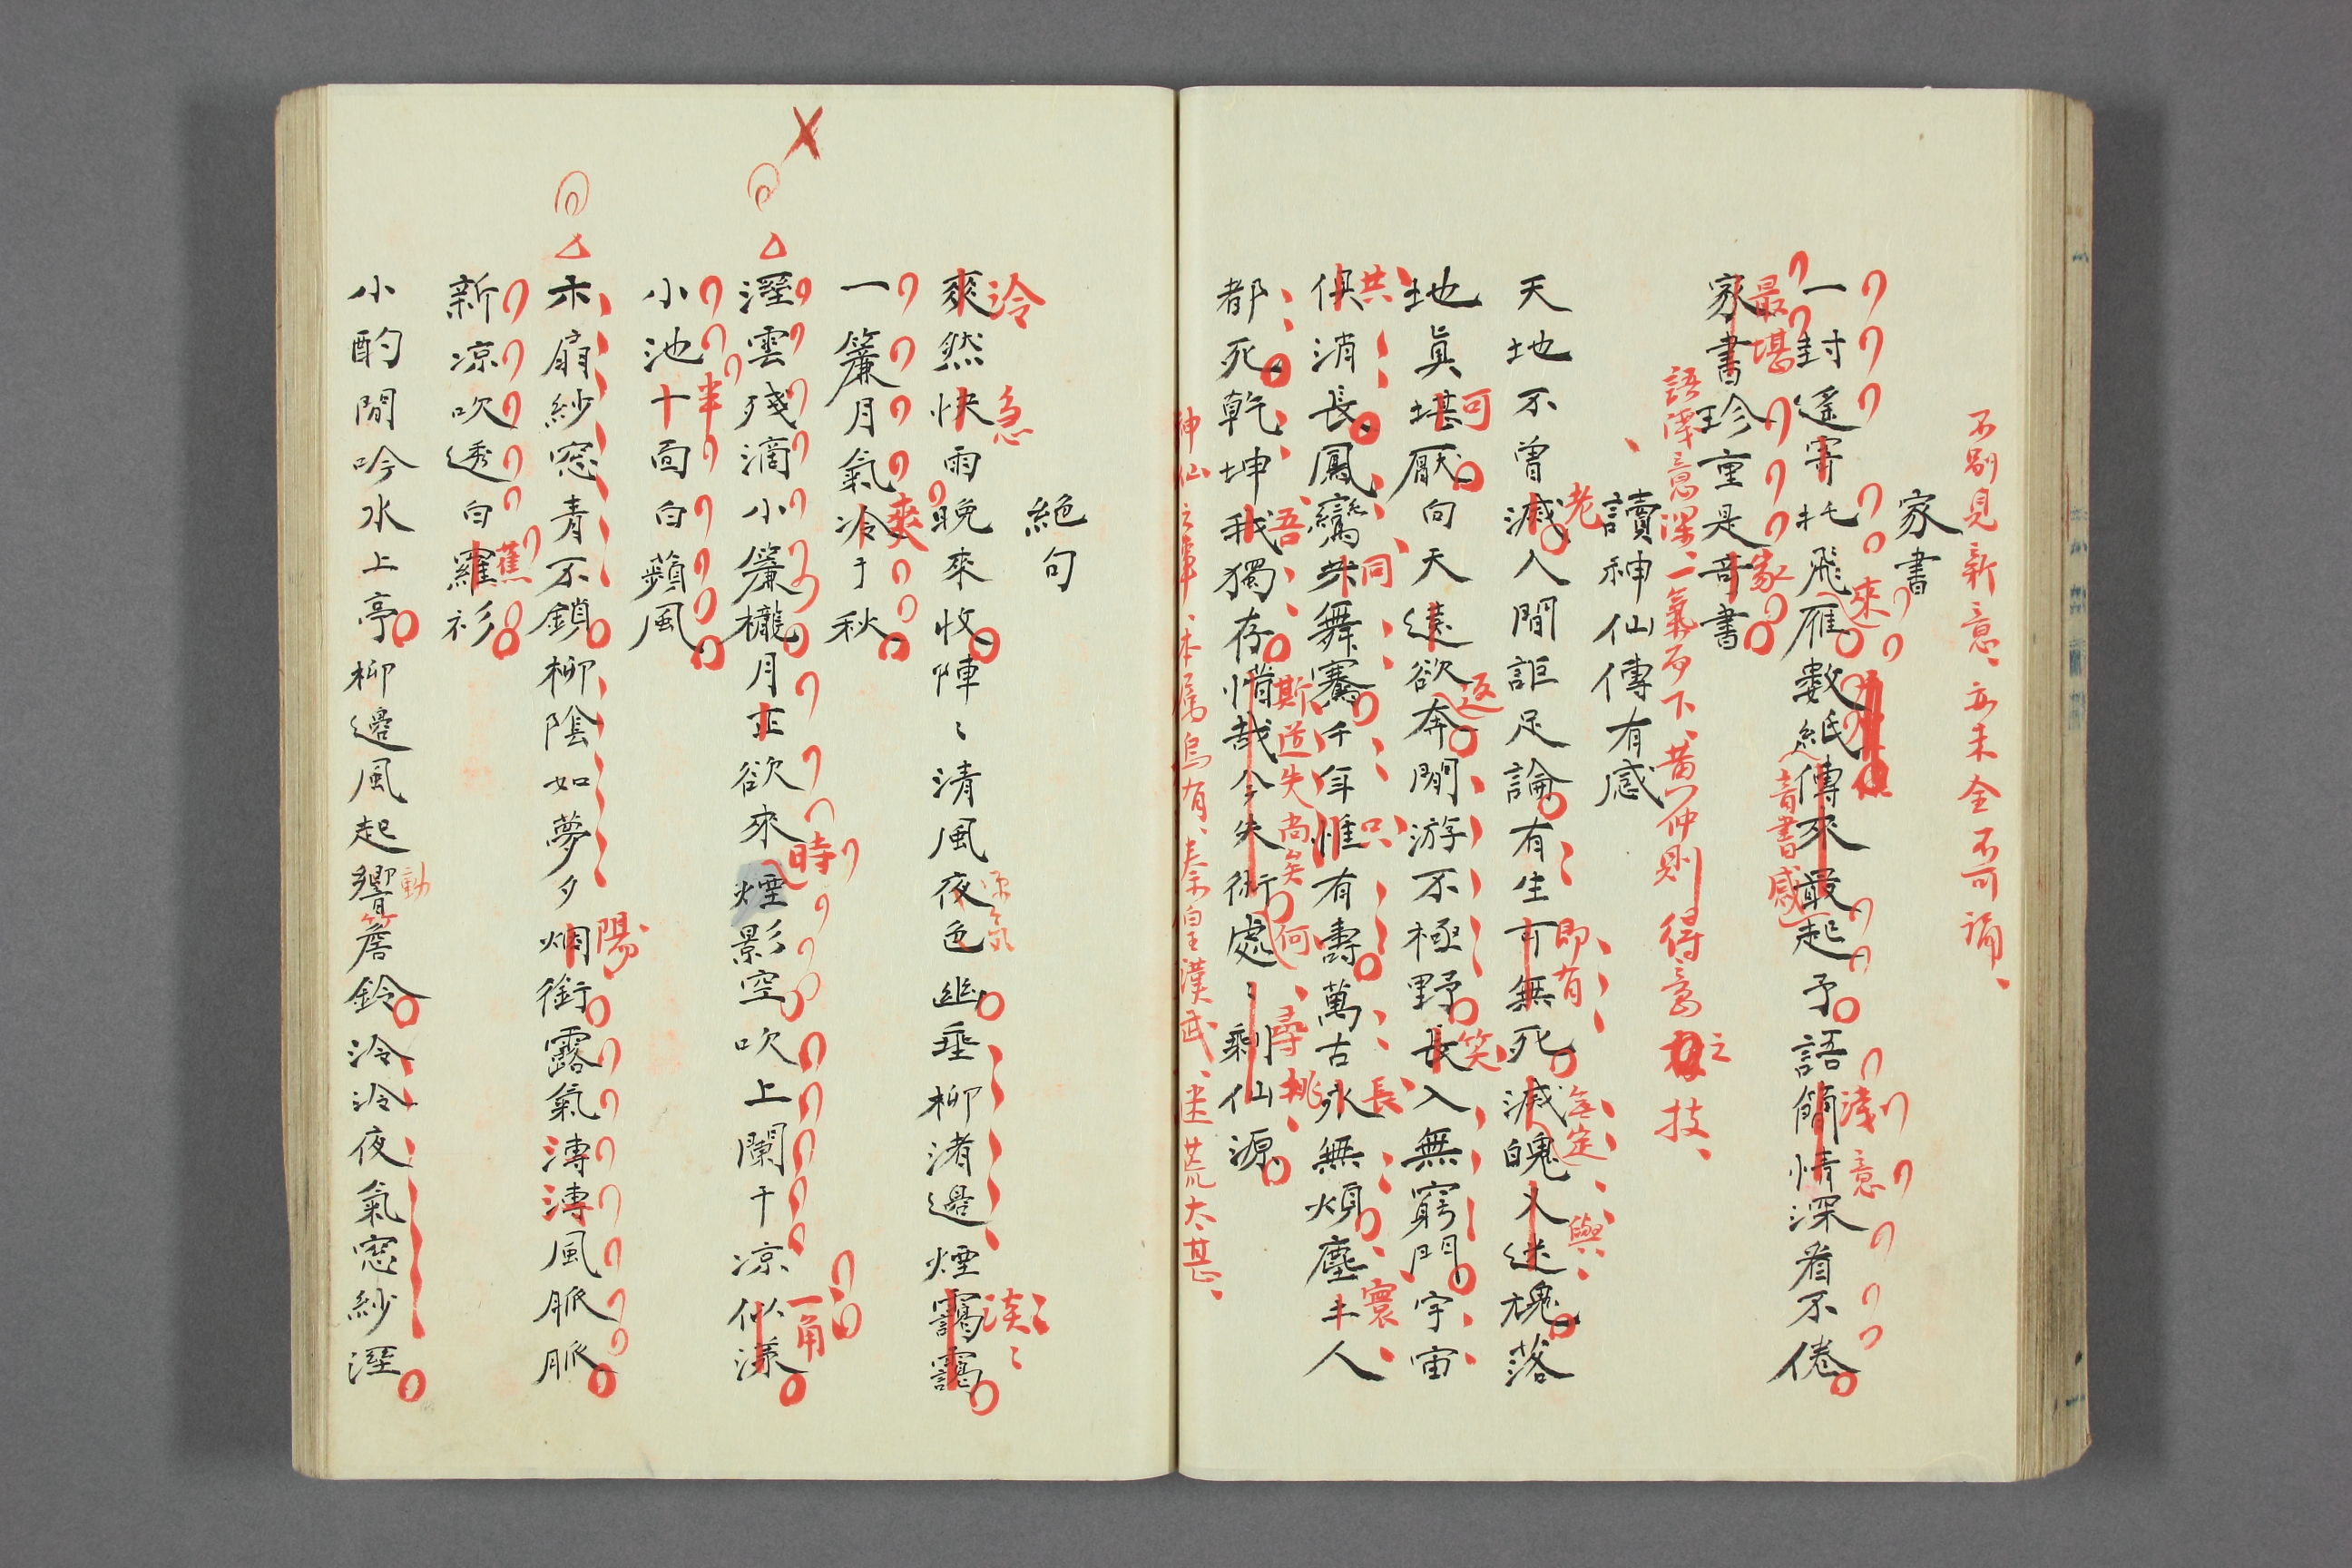 不別見新意、亦未全不可誦、
家書
一封遙寄托飛雁數紙傳來最起予語簡情深看不倦
來
音書感
淺
意
家書珍重是奇書
最堪
家
語澤意深一氣而下、黄仲則得意之技、
讀神仙傳有感
天地不曾滅人間詎足論有生可無死滅魄入迷魂落
老
即有
無定
與
地眞堪厭向天遠欲奔閒游不極野長入無窮門宇宙
可
返
笑
俱消長鳳鸞共舞騫千年惟有壽萬古永無煩塵土人
共
同
只
長
寰
都死乾坤我獨存惜哉今失術處〻剩仙源
吾
斯道失尚矣何
尋桃
神仙之事、本屬烏有、秦皇漢武、迷荒太甚、
絕句
爽然快雨晚來收陣〻清風夜色幽垂柳渚邊煙靄靄
泠
急
淡〻
一簾月氣冷于秋
爽
溼雲殘滴小簾櫳月正欲來煙影空吹上闌干凉似漾
時
一角
小池十面白蘋風
半
未扇紗窓青不鎖柳陰如夢夕烟銜露氣漙漙風脈脈
陽
新凉吹透白羅衫
蕉
小酌閒吟水上亭柳邊風起響簷鈴泠泠夜氣窓紗溼
動